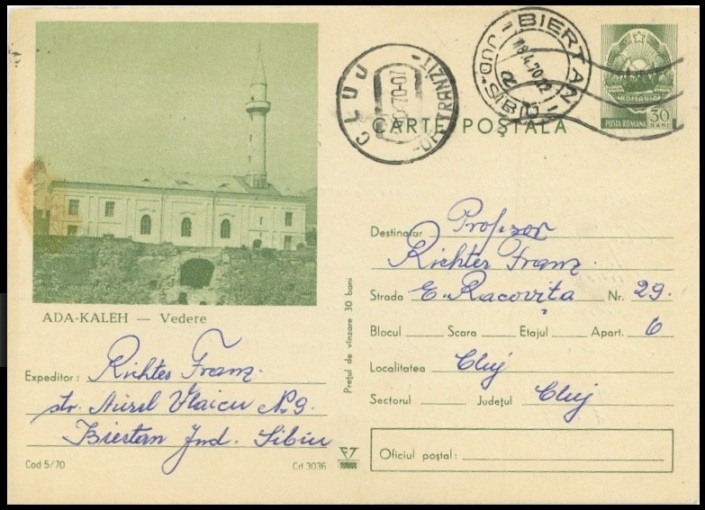 CARTE POȘTALĂ
ROMANIA
POSTA ROMANA 30 BANI
BIERTAN
JUD. SIBIU
CLUJ
TRANZIT
70-07
ADA-KALEH — Vedere
Expeditor: Richter Franz.
str. Aurel Vlaicu N. 9.
Biertan Jud. Sibiu
Cod 5/70
Cd 3036
Prețul de vînzare 30 bani
Destinatar Profesor
Richter Franz.
Strada E. Racovița Nr. 29.
Blocul Scara Etajul Apart. 6
Localitatea Cluj
Sectorul Județul Cluj
Oficiul poștal: